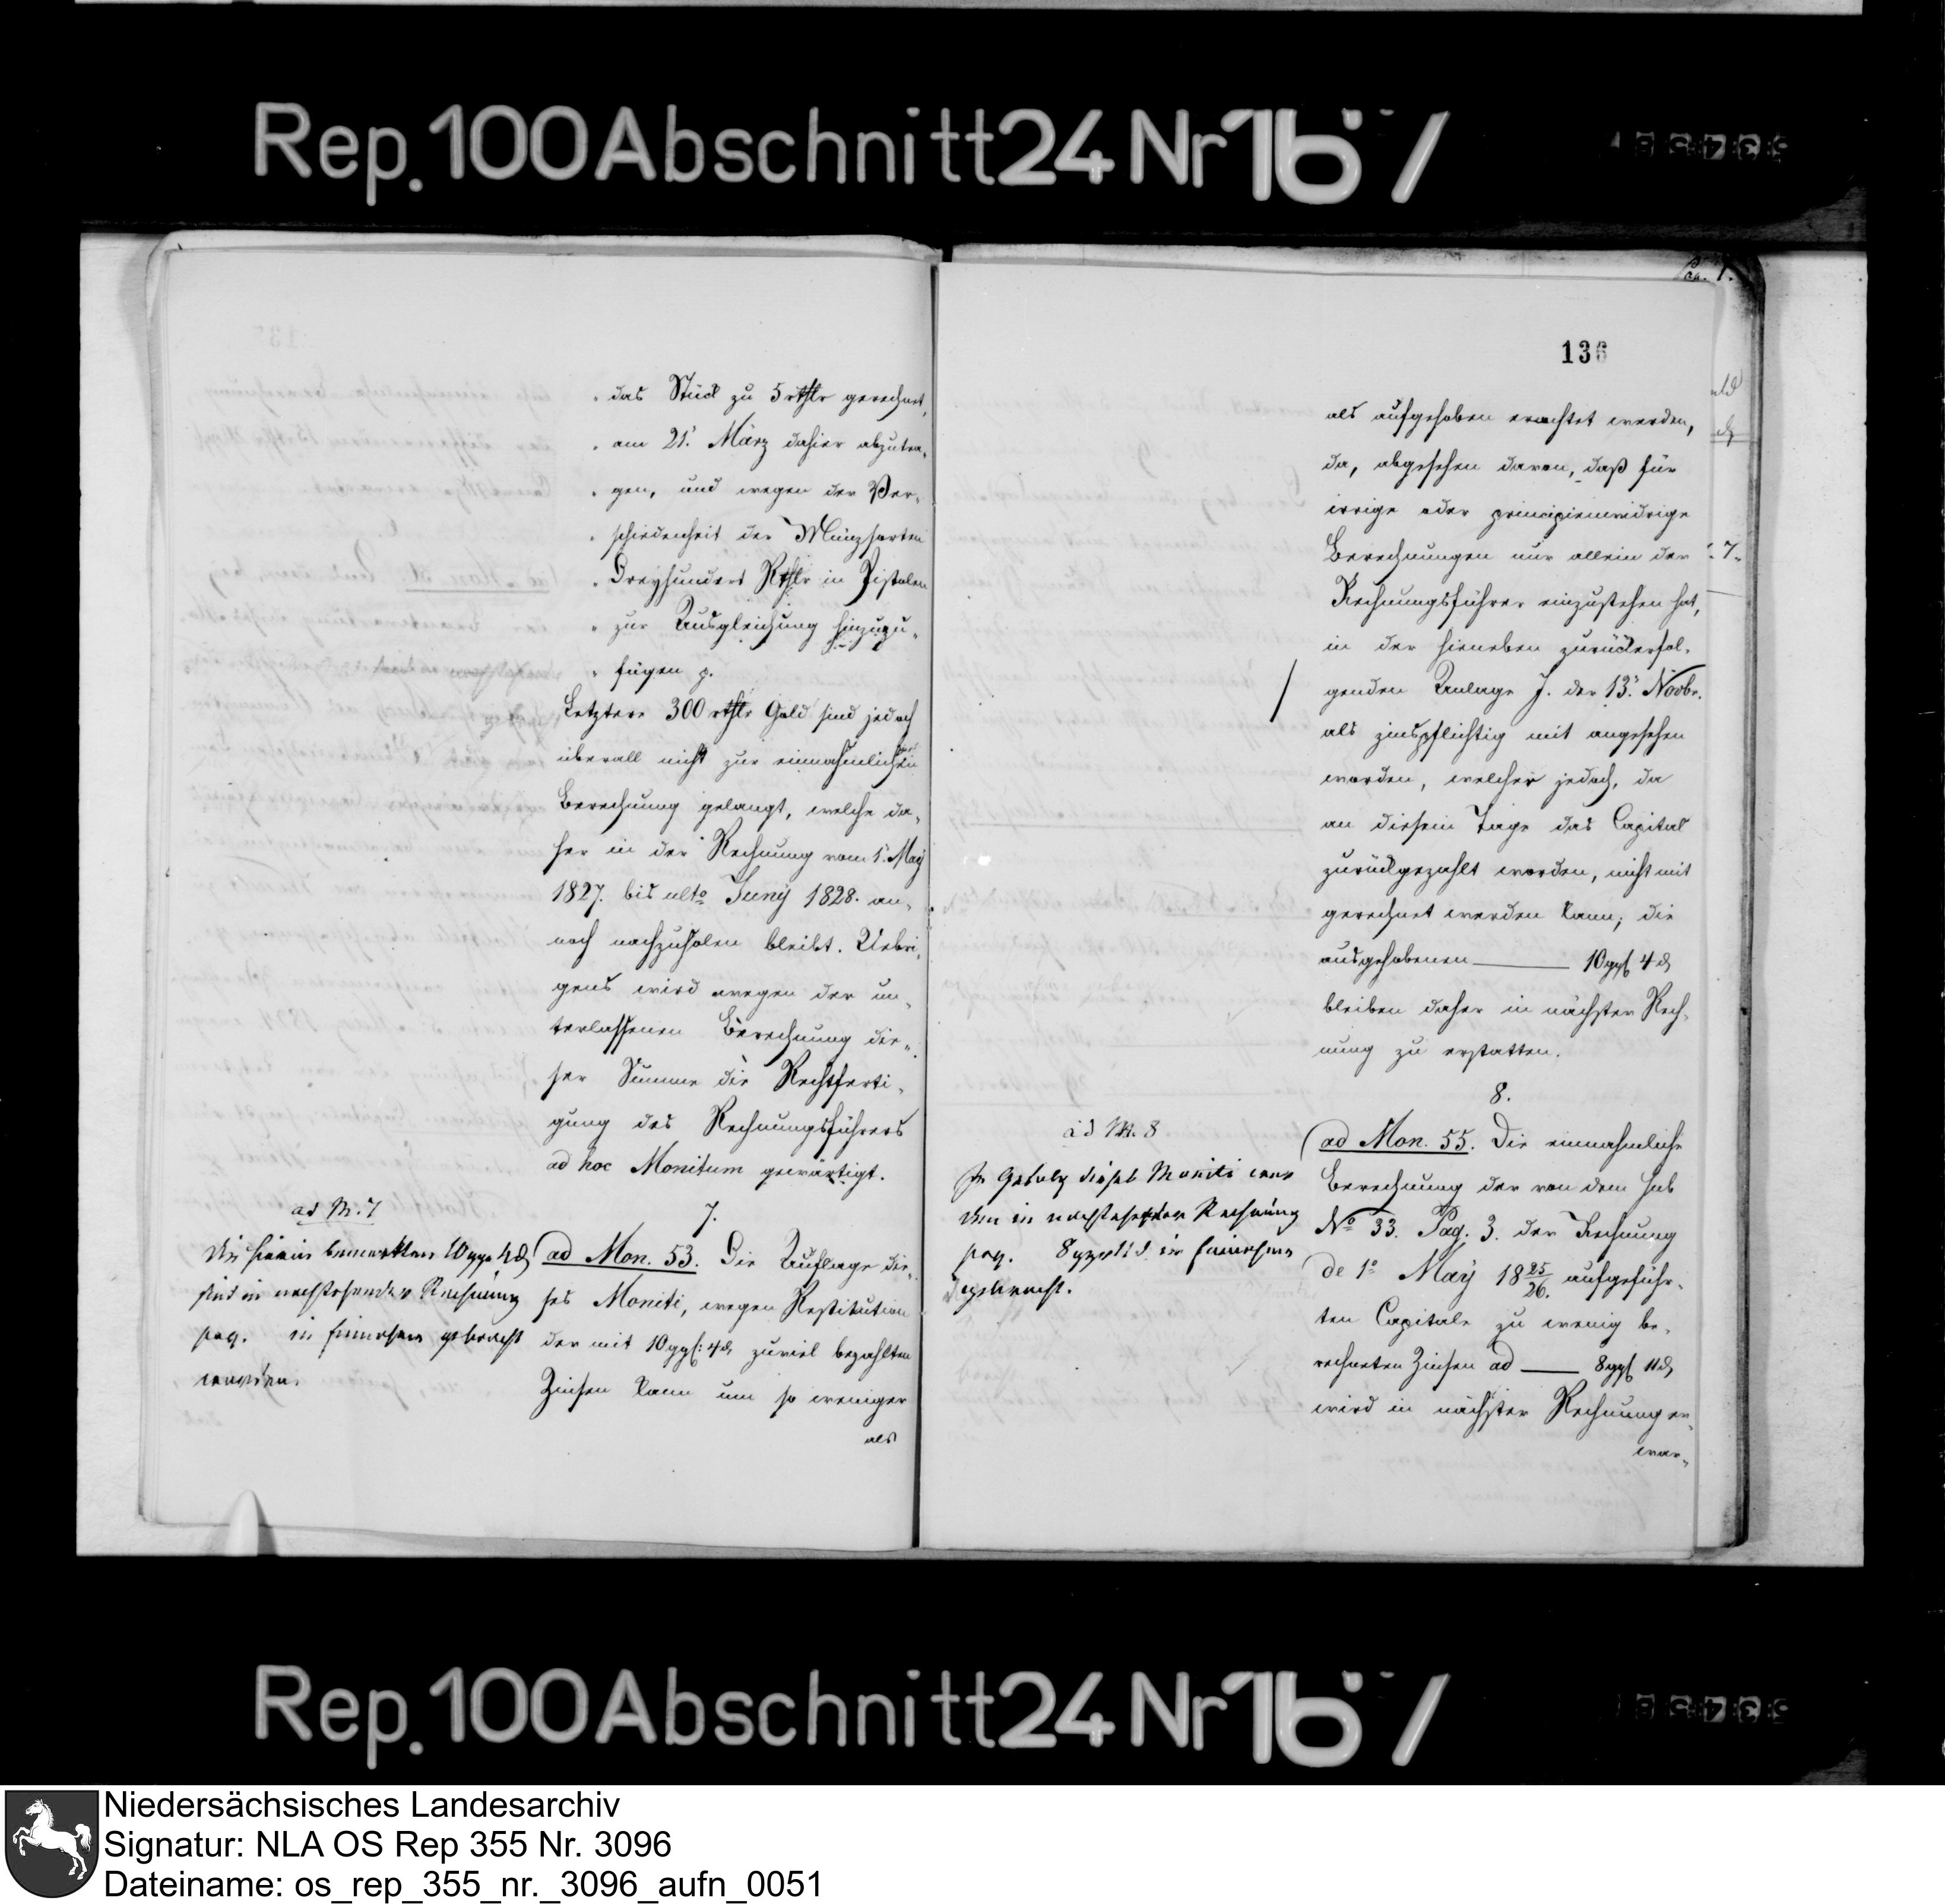 Rep. 100 Abschnitt 24 Nr 167
„ das Stück zu 5 rthlr gerechnet,
„ am 21. März dahier abzutra„
„ gen, und wegen der Ver„
„ schiedenheit der Münzsorten
„ Dreyhundert Rthlr in Pistolen
„ zur Ausgleichung hinzuzu„
„ fügen p.
Letztere 300 rthlr Gold sind jedoch
überall nicht zur einnahmlichen
Berechnung gelangt, welche da„
her in der Rechnung vom 1. May
1827. bis ulto Juny 1828. an„
noch nachzuholen bleibt. Uebri„
gens wird wegen der un„
terlassenen Berechnung die„
ser Summe die Rechtferti„
gung des Rechnungsführers
ad hoc Monitum gewärtigt.
7.
ad M. 7
Die hierin bemerkten 10 ggr 4 d
sind in nachstehender Rechnung
pag. in Einnahme gebracht
worden.
ad Mon. 53. Die Auflage die„
ses Moniti, wegen Restitution
der mit 10 ggr: 4 d zuviel bezahlten
Zinsen kann um so weniger
als
Pag. 7.
136
als aufgehoben erachtet werden,
da, abgesehen davon, daß für
irrige oder principienwidrige
Berechnungen nur allein der
Rechnungsführer einzustehen hat,
in der hieneben zurückerfol„
genden Anlage J. der 13. Novbr.
als zinspflichtig mit angesehen
worden, welcher jedoch, da
an diesem Tage das Capital
zurückgezahlt worden, nicht mit
gerechnet werden kann; die
ausgehobenen 10 ggr 4 d
bleiben daher in nächster Rech„
nung zu erstatten.
8.
ad M. 8
In Gefolg dieses Moniti
in nachstehender Rechnung
pag. 8 ggr 11 d in Einnahme
gebracht.
ad Mon. 55. Die einnahmliche
Berechnung der von dem sub
No 33. Pag. 3. der Rechnung
de 1o May 18 25/26. aufgeführ„
ten Capitale zu wenig be„
rechneten Zinsen ad 8 ggr 11 d
wird in nächster Rechnung er„
war„
Rep. 100 Abschnitt 24 Nr 167
Niedersächsisches Landesarchiv
Signatur: NLA OS Rep 355 Nr. 3096
Dateiname: os_rep_355_nr._3096_aufn_0051